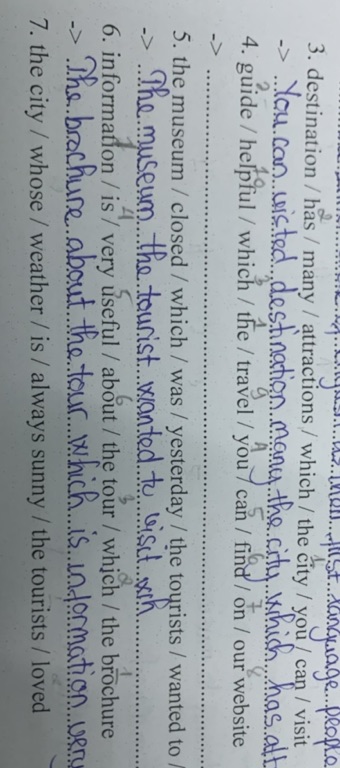 language people
3. destination / has / many / attractions / which / the city / you / can / visit
-> You can visted destination many the city which has att
4. guide / helpful / which / the / travel / you / can / find / on / our website
->
5. the museum / closed / which / was / yesterday / the tourists / wanted to /
-> The museum the tourist wanted to visit wh
6. information / is / very useful / about / the tour / which / the brochure
-> The brochure about the tour which is information very
7. the city / whose / weather / is / always sunny / the tourists / loved